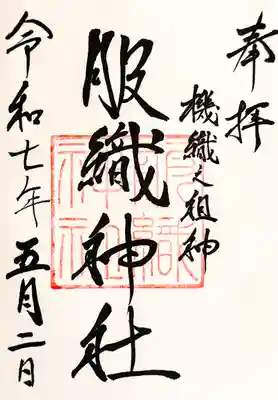 奉拝
機織之祖神
服織神社
令和七年 五月二日
服織
神社